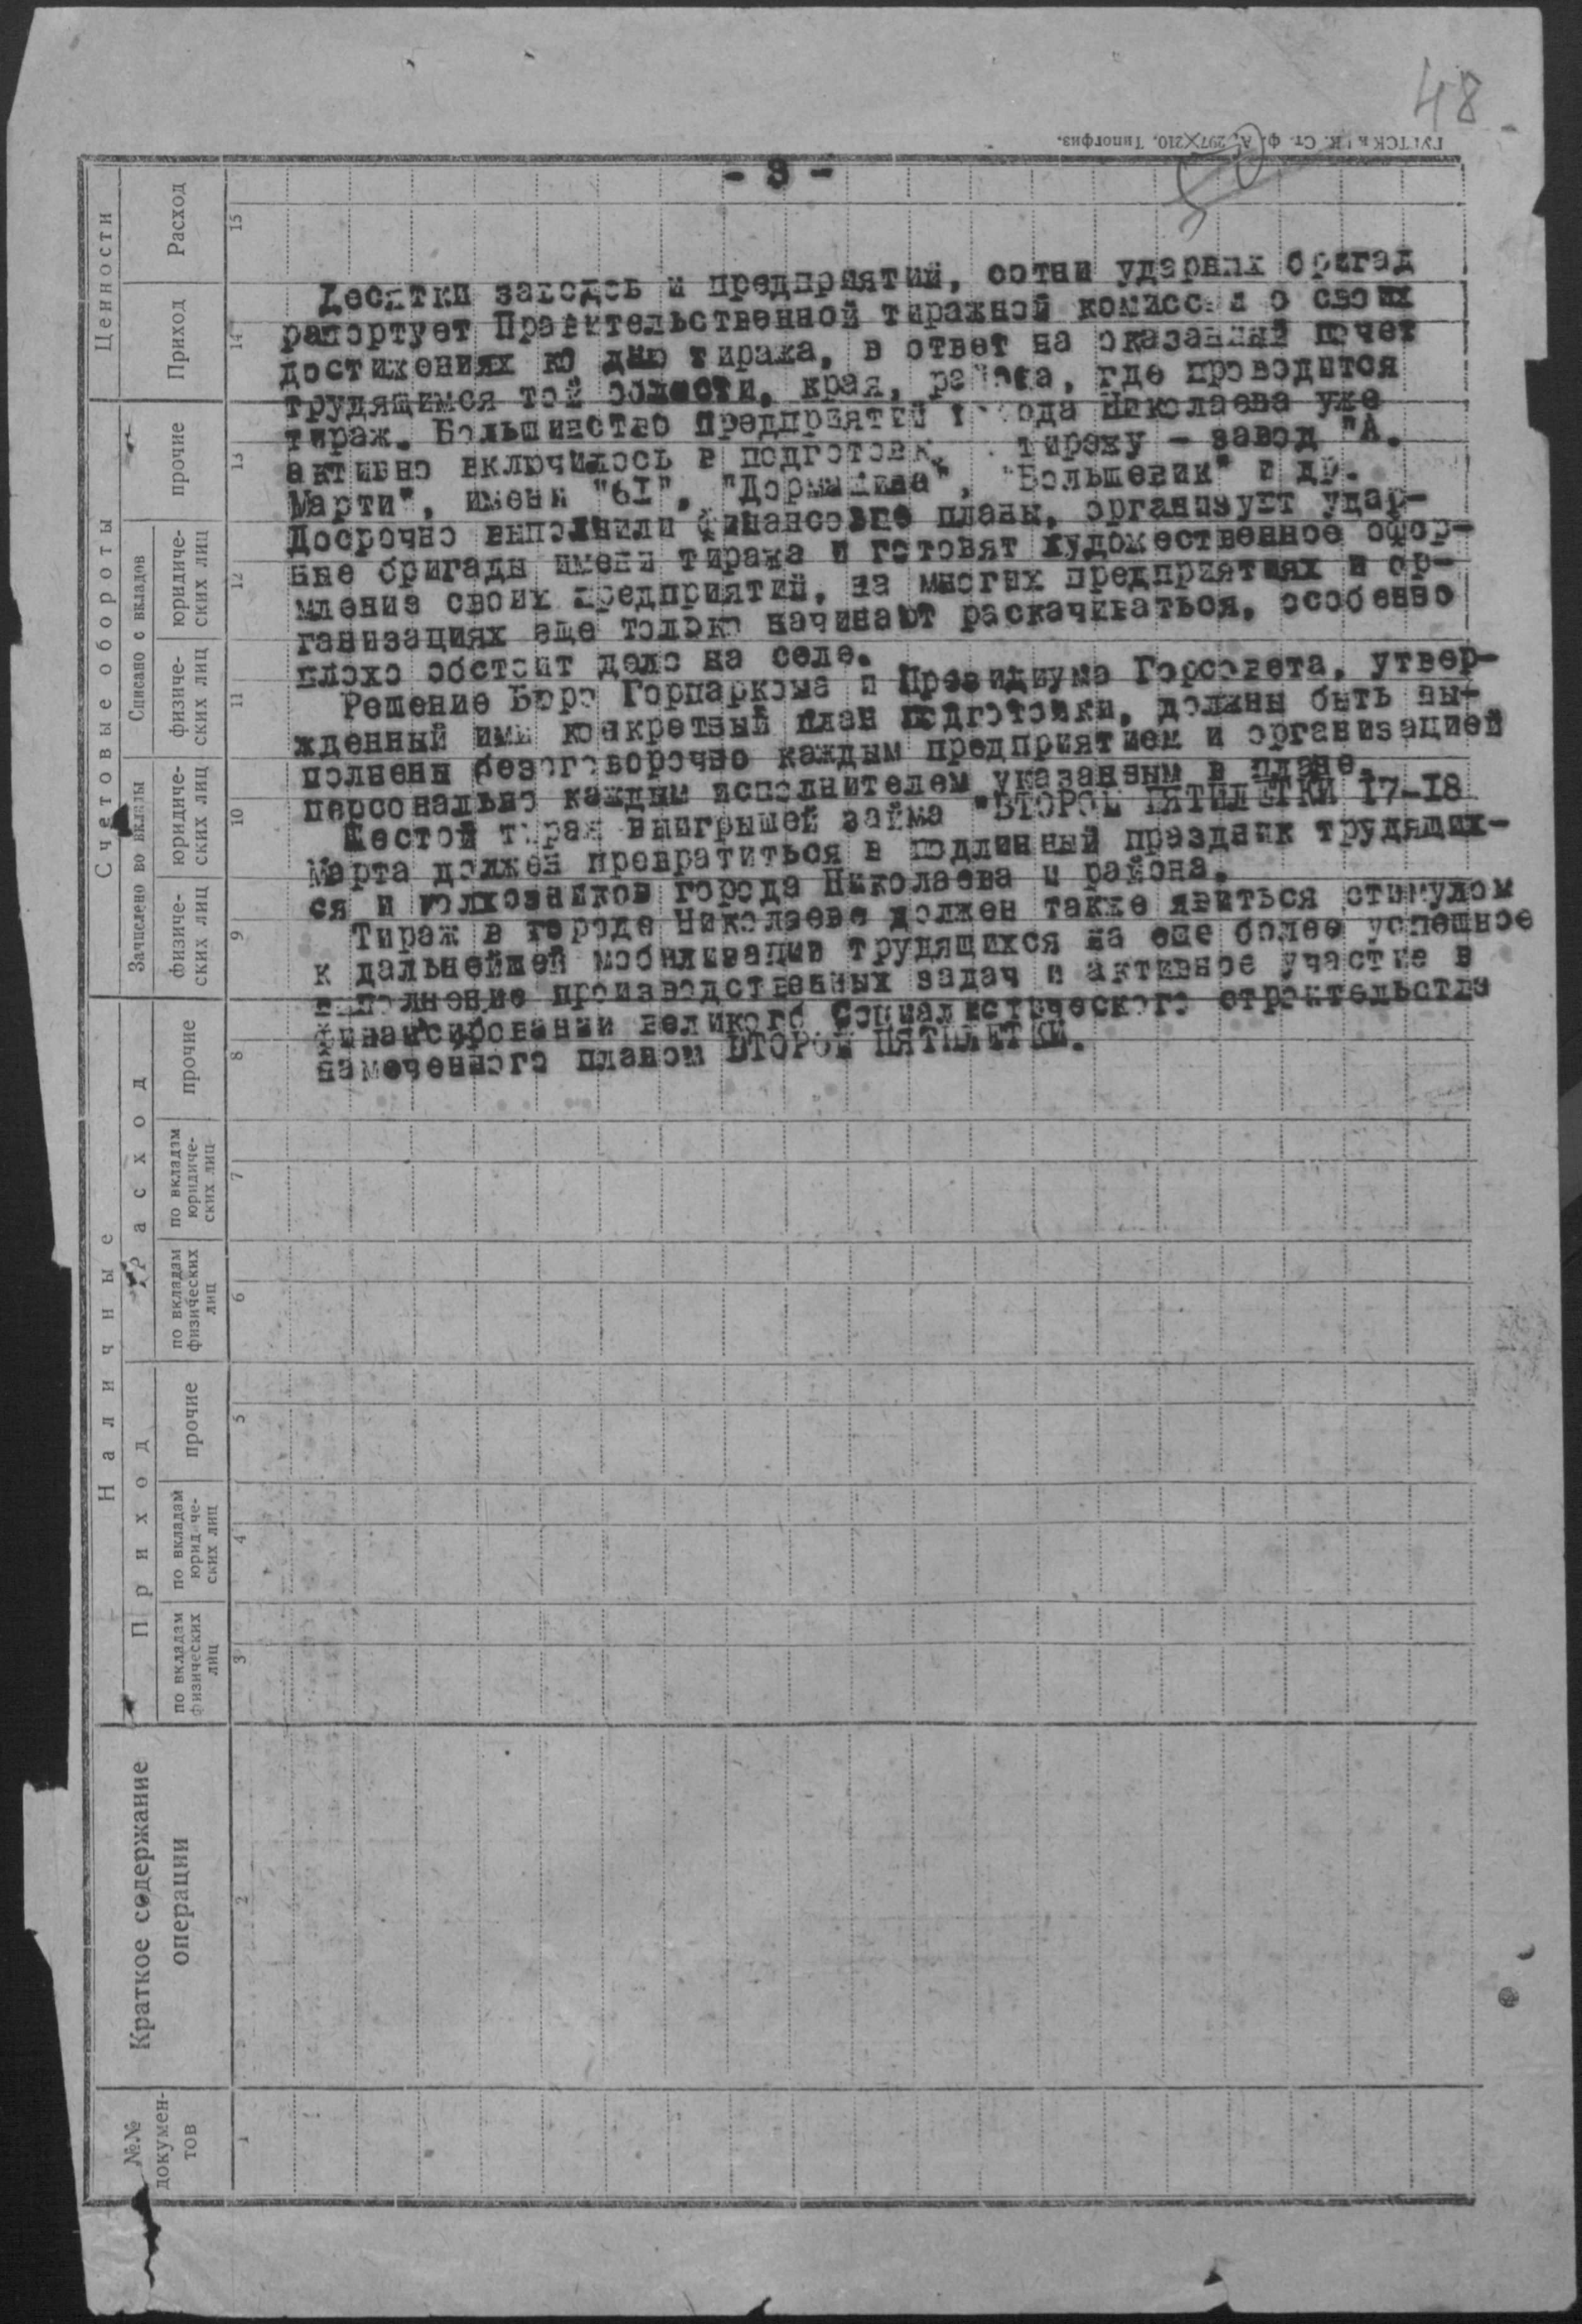 48
ГУГТСК и К. Ст. ф. А, 297×210. Типогфиз.
50
- 3 -
Десятки заводов и предприятий, сотни ударных бригад
рапортует Правительственной тиражной комиссии о своих
достижениях ко дню тиража, в ответ на оказанный почет
трудящимся той области, края, района, где проводится
тираж. Большинство предприятий города Николаева уже
активно включилось в подготовк. тиражу - завод "А.
Марти", имени "61", "Дормашина", "Большевик" и др.
Досрочно выполнили финансовые планы, организует удар-
ные бригады имени тиража и готовят художественное офор-
мление своих предприятий, на многих предприятиях и ор-
ганизациях еще только начинают раскачиваться, особенно
плохо обстоит дело на селе.
Решение Бюро Горпаркома и Президиума Горсовета, утвер-
жденный ими конкретный план подготовки, должны быть вы-
полнены безоговорочно каждым предприятием и организацией
персонально каждым исполнителем указанным в плане.
Шестой тираж выигрышей займа "ВТОРОЙ ПЯТИЛЕТКИ 17-18
Марта должен превратиться в подлинный праздник трудящих-
ся и колхозников города Николаева и района.
Тираж в городе Николаеве должен также явиться стимулом
к дальнейшей мобилизации трудящихся на еще более успешное
выполнение производственных задач и активное участие в
финансировании великого Социалистического строительства
намеченного планом ВТОРОЙ ПЯТИЛЕТКИ.
№№ докумен-
тов
Краткое содержание
операции
Наличные
Приход
по вкладам
физических
лиц
по вкладам
юридиче-
ских лиц
прочие
Расход
по вкладам
физических
лиц
по вкладам
юридиче-
ских лиц
прочие
Счетовые обороты
Зачислено во вклады
физиче-
ских лиц
юридиче-
ских лиц
Списано с вкладов
физиче-
ских лиц
юридиче-
ских лиц
прочие
Ценности
Приход
Расход
1
2
3
4
5
6
7
8
9
10
11
12
13
14
15